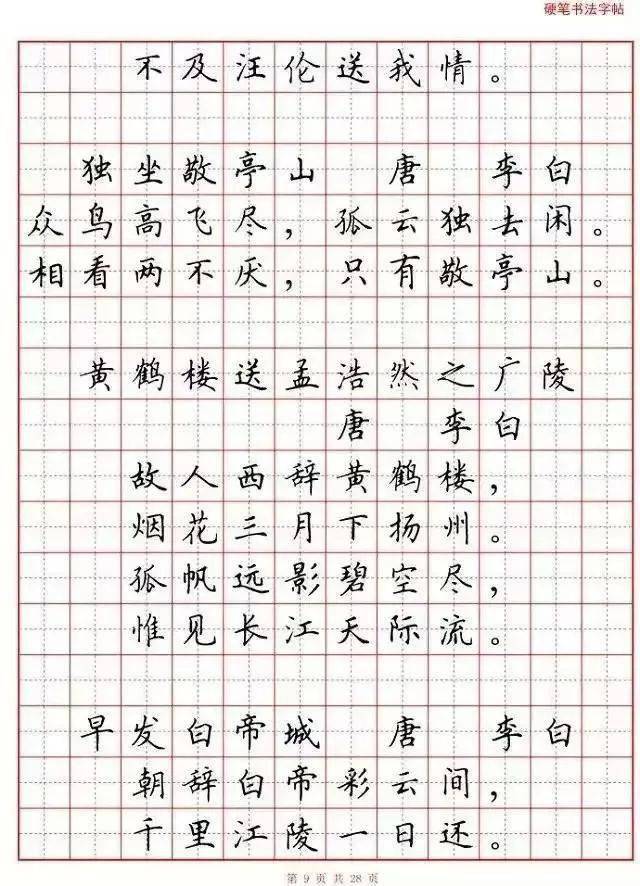 硬笔书法字帖
不及汪伦送我情。
独坐敬亭山 唐 李白
众鸟高飞尽，孤云独去闲。
相看两不厌，只有敬亭山。
黄鹤楼送孟浩然之广陵
唐 李白
故人西辞黄鹤楼，
烟花三月下扬州。
孤帆远影碧空尽，
惟见长江天际流。
早发白帝城 唐 李白
朝辞白帝彩云间，
千里江陵一日还。
第 9 页 共 28 页